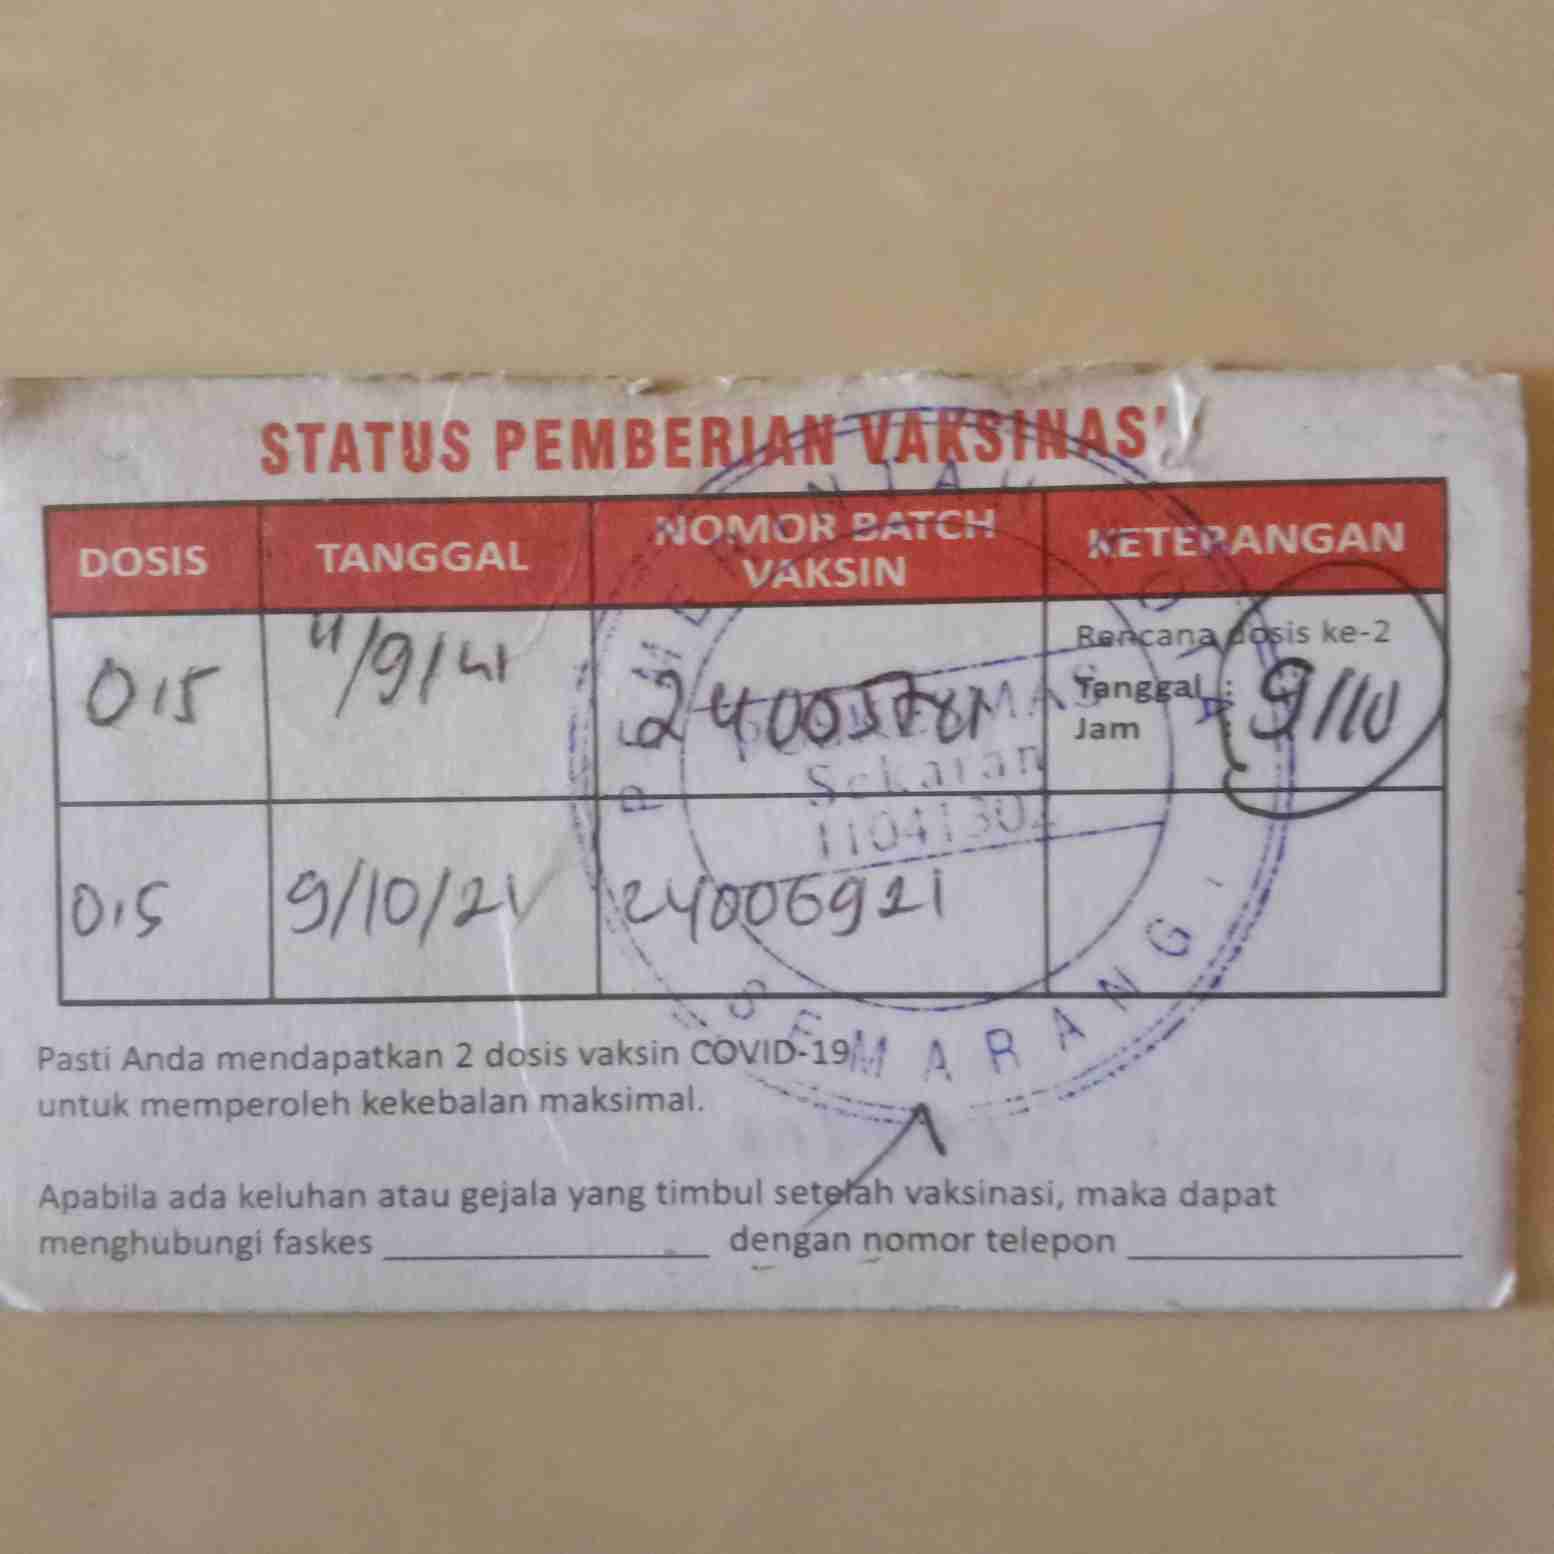 STATUS PEMBERIAN VAKSINASI
DOSIS TANGGAL NOMOR BATCH VAKSIN KETERANGAN
0,5 11/9/21
Rencana dosis ke-2
Tanggal : 9/10
Jam
0,5 9/10/21 24006921
Sekaran
11041302
SEMARANG
Pasti Anda mendapatkan 2 dosis vaksin COVID-19
untuk memperoleh kekebalan maksimal.
Apabila ada keluhan atau gejala yang timbul setelah vaksinasi, maka dapat
menghubungi faskes dengan nomor telepon